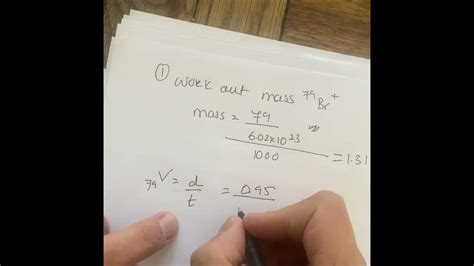 ① Work out mass ⁷⁹Br⁺
mass = 79
6.02x10²³
1000
= 1.31
₇₉V = d/t = 0.95